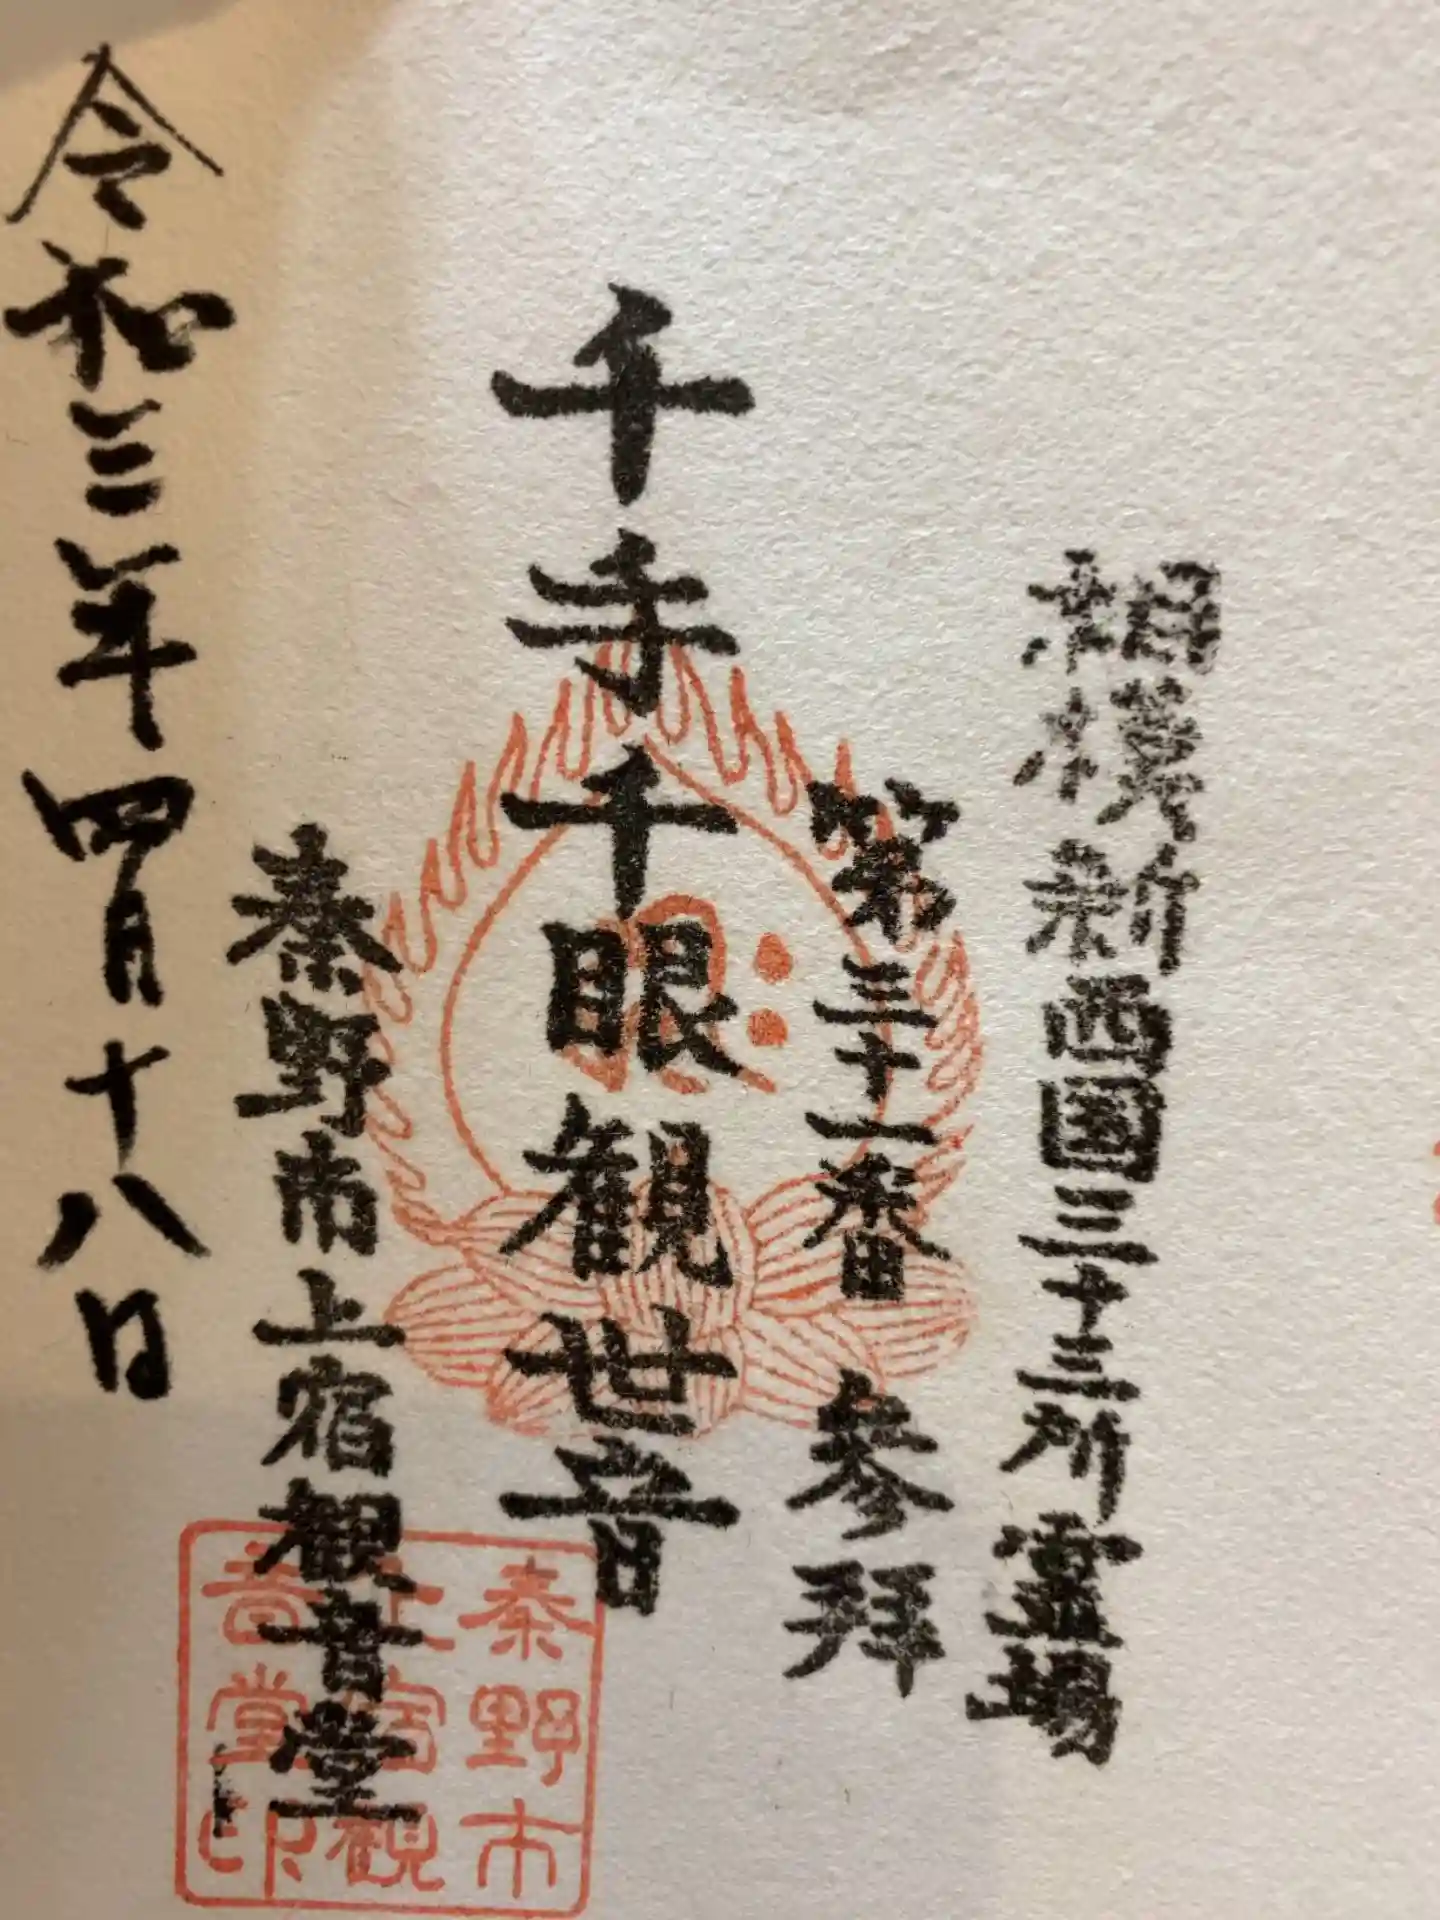 相模新西國三十三所霊場
第三十一番 参拝
千手千眼観世音
秦野市上宿観音堂
令和三年四月十八日
秦野市
上宿観
音堂印